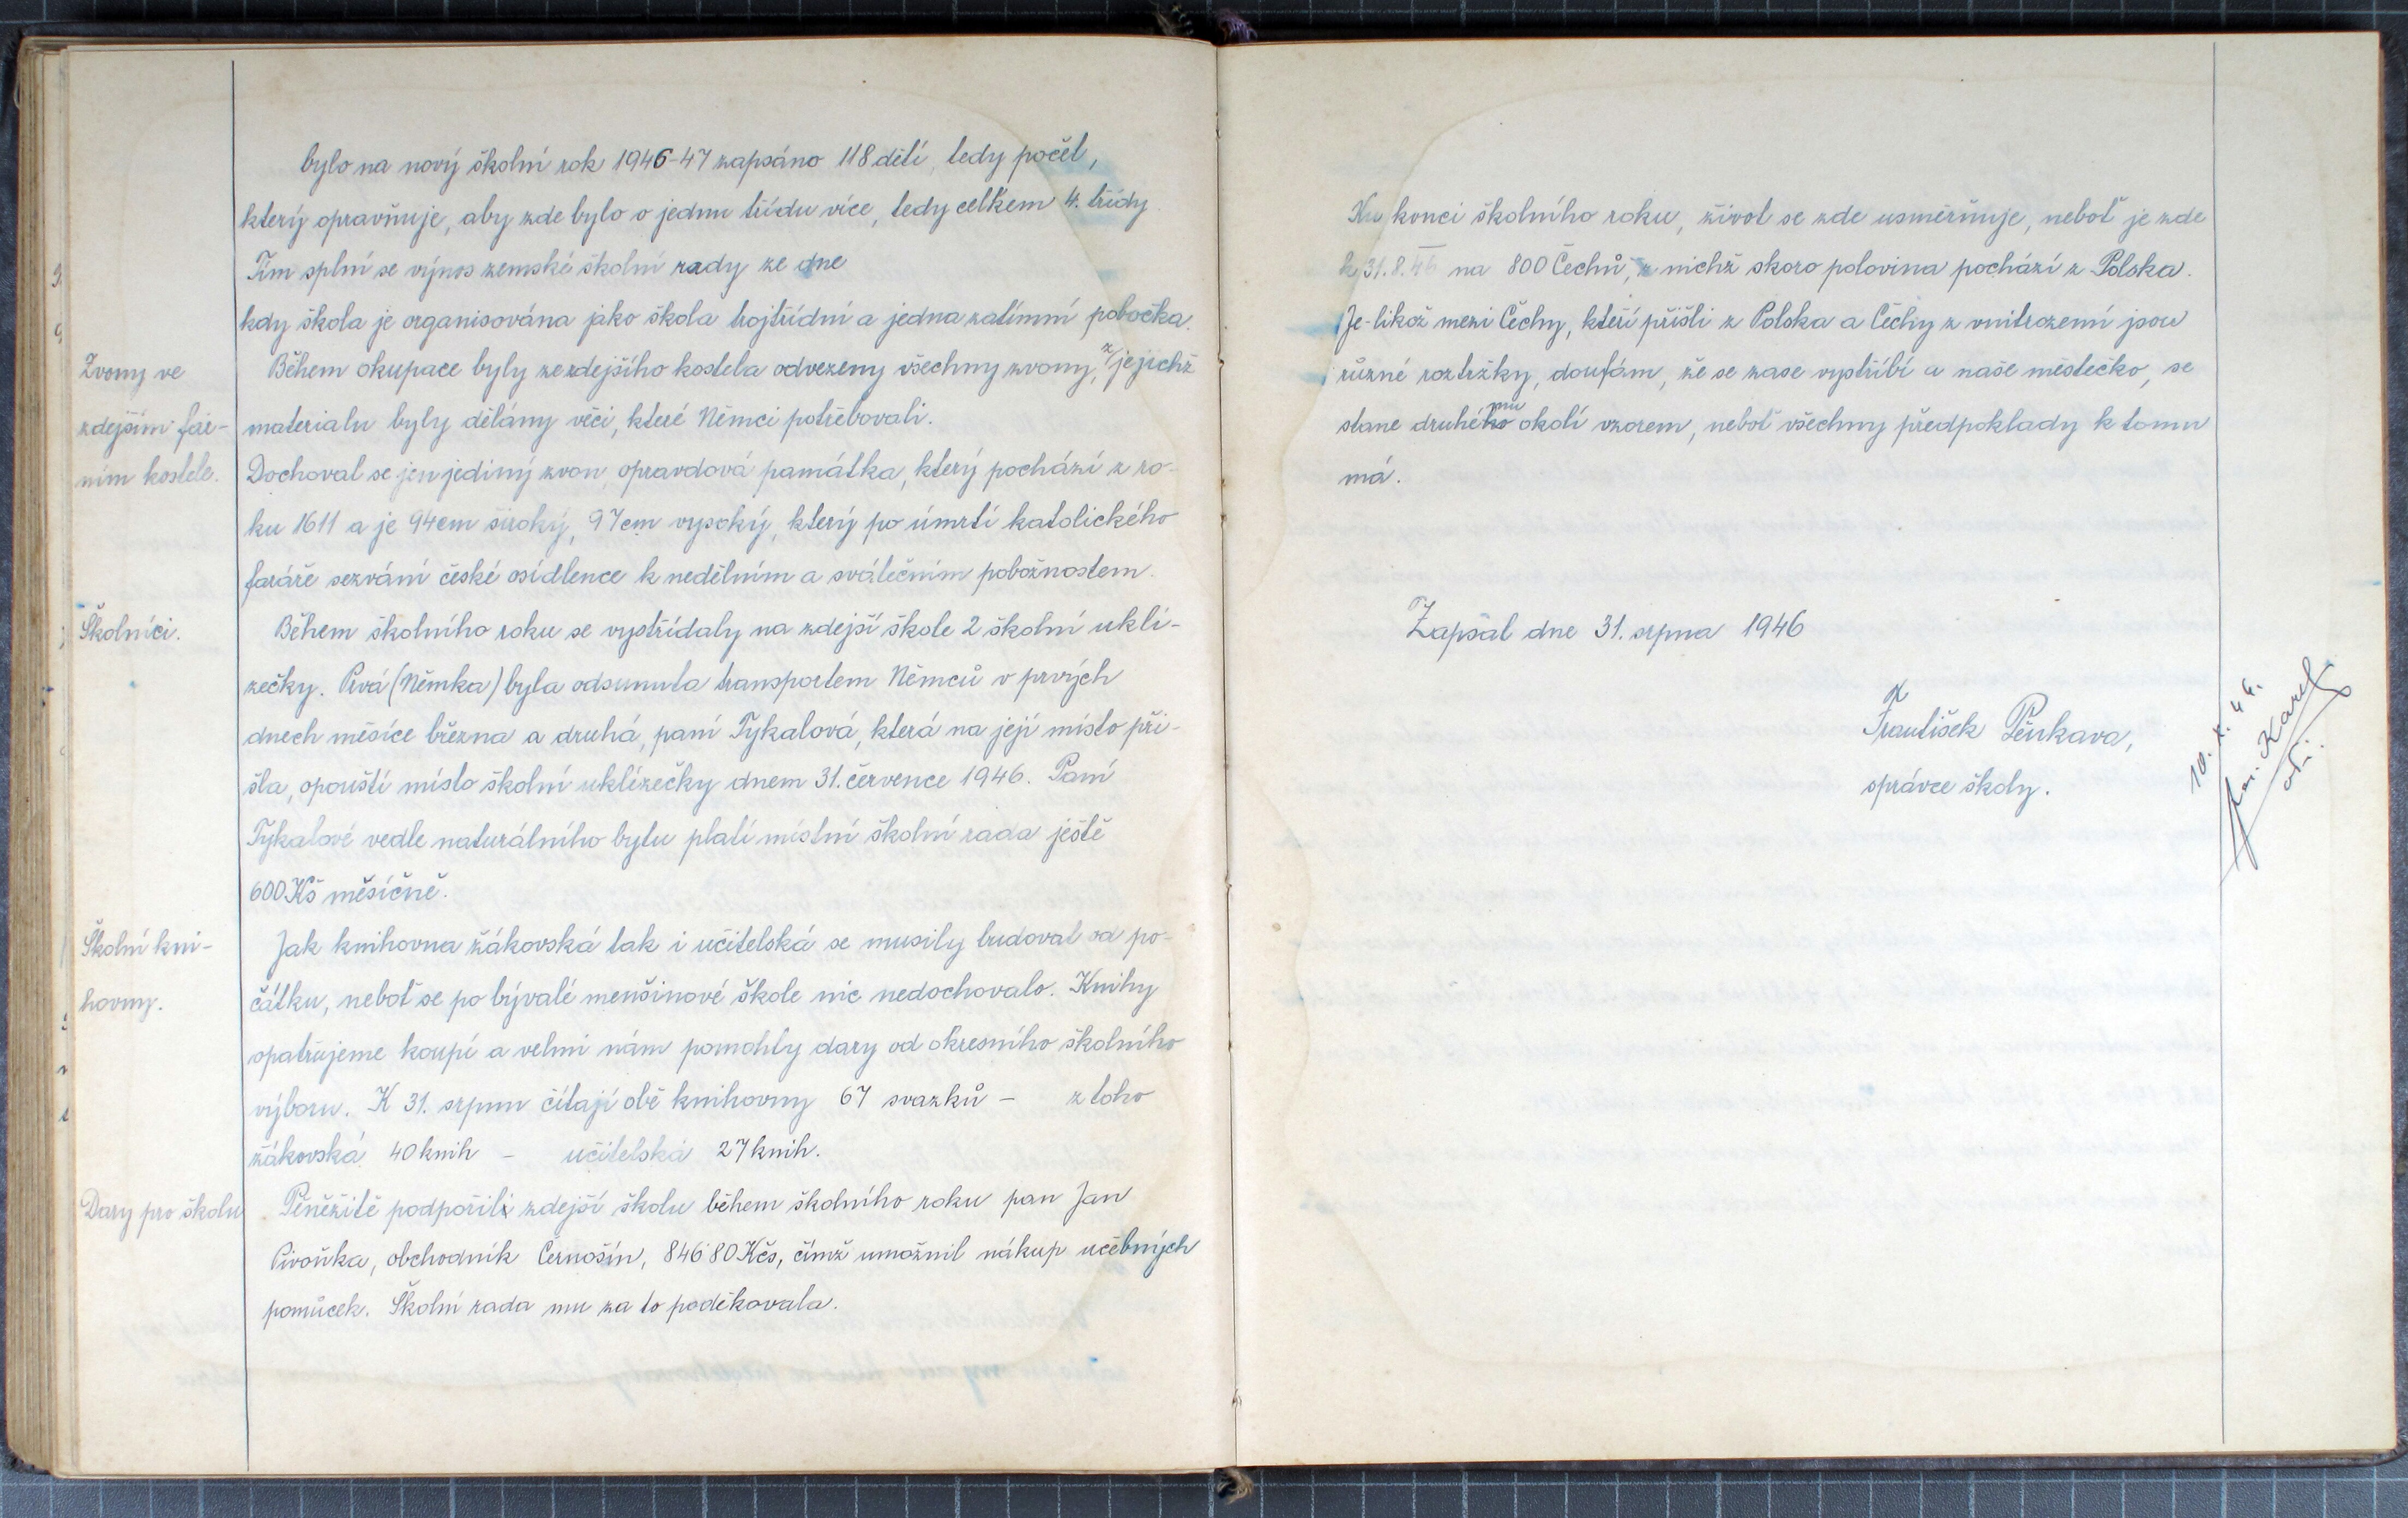 bylo na nový školní rok 1946-47 zapsáno 118 dětí, tedy počet,
který opravňuje, aby zde bylo o jednu třídu více, tedy celkem 4. třídy.
Tím splní se výnos zemské školní rady ze dne
kdy škola je organisována jako škola trojtřídní a jedna zatímní pobočka.
Zvony ve
zdejším far-
ním kostele.
Během okupace byly ze zdejšího kostela odvezeny všechny zvony, z jejichž
materialu byly dělány věci, které Němci potřebovali.
Dochoval se jen jediný zvon, opravdová památka, který pochází z ro-
ku 1611 a je 94cm široký, 97cm vysoký, který po úmrtí katolického
faráře sezvání české osídlence k nedělním a svátečním pobožnostem.
Školníci.
Během školního roku se vystřídaly na zdejší škole 2 školní uklí-
zečky. Prvá (Němka) byla odsunuta transportem Němců v prvých
dnech měsíce března a druhá, paní Tykalová, která na její místo při-
šla, opouští místo školní uklízečky dnem 31. července 1946. Paní
Tykalové vedle naturálního bytu platí místní školní rada ještě
600 Kčs měsíčně.
Školní kni-
hovny.
Jak knihovna žákovská tak i učitelská se musily budovat od po-
čátku, neboť se po bývalé menšinové škole nic nedochovalo. Knihy
opatřujeme koupí a velmi nám pomohly dary od okresního školního
výboru. K 31. srpnu čítají obě knihovny 67 svazků - z toho
žákovská 40 knih - učitelská 27 knih.
Dary pro školu
Peněžitě podpořil zdejší školu během školního roku pan Jan
Pivoňka, obchodník Černošín, 846'80 Kčs, čímž umožnil nákup učebných
pomůcek. Školní rada mu za to poděkovala.
Ku konci školního roku, život se zde usměrňuje, neboť je zde
k 31.8.46 na 800 Čechů, z nichž skoro polovina pochází z Polska.
Je-likož mezi Čechy, kteří přišli z Polska a Čechy z vnitrozemí jsou
různé roztržky, doufám, že se zase vystříbí a naše městečko, se
stane druhému okolí vzorem, neboť všechny předpoklady k tomu
má.
Zapsal dne 31. srpna 1946
František Pěnkava,
správce školy.
10. X. 46.
Karel